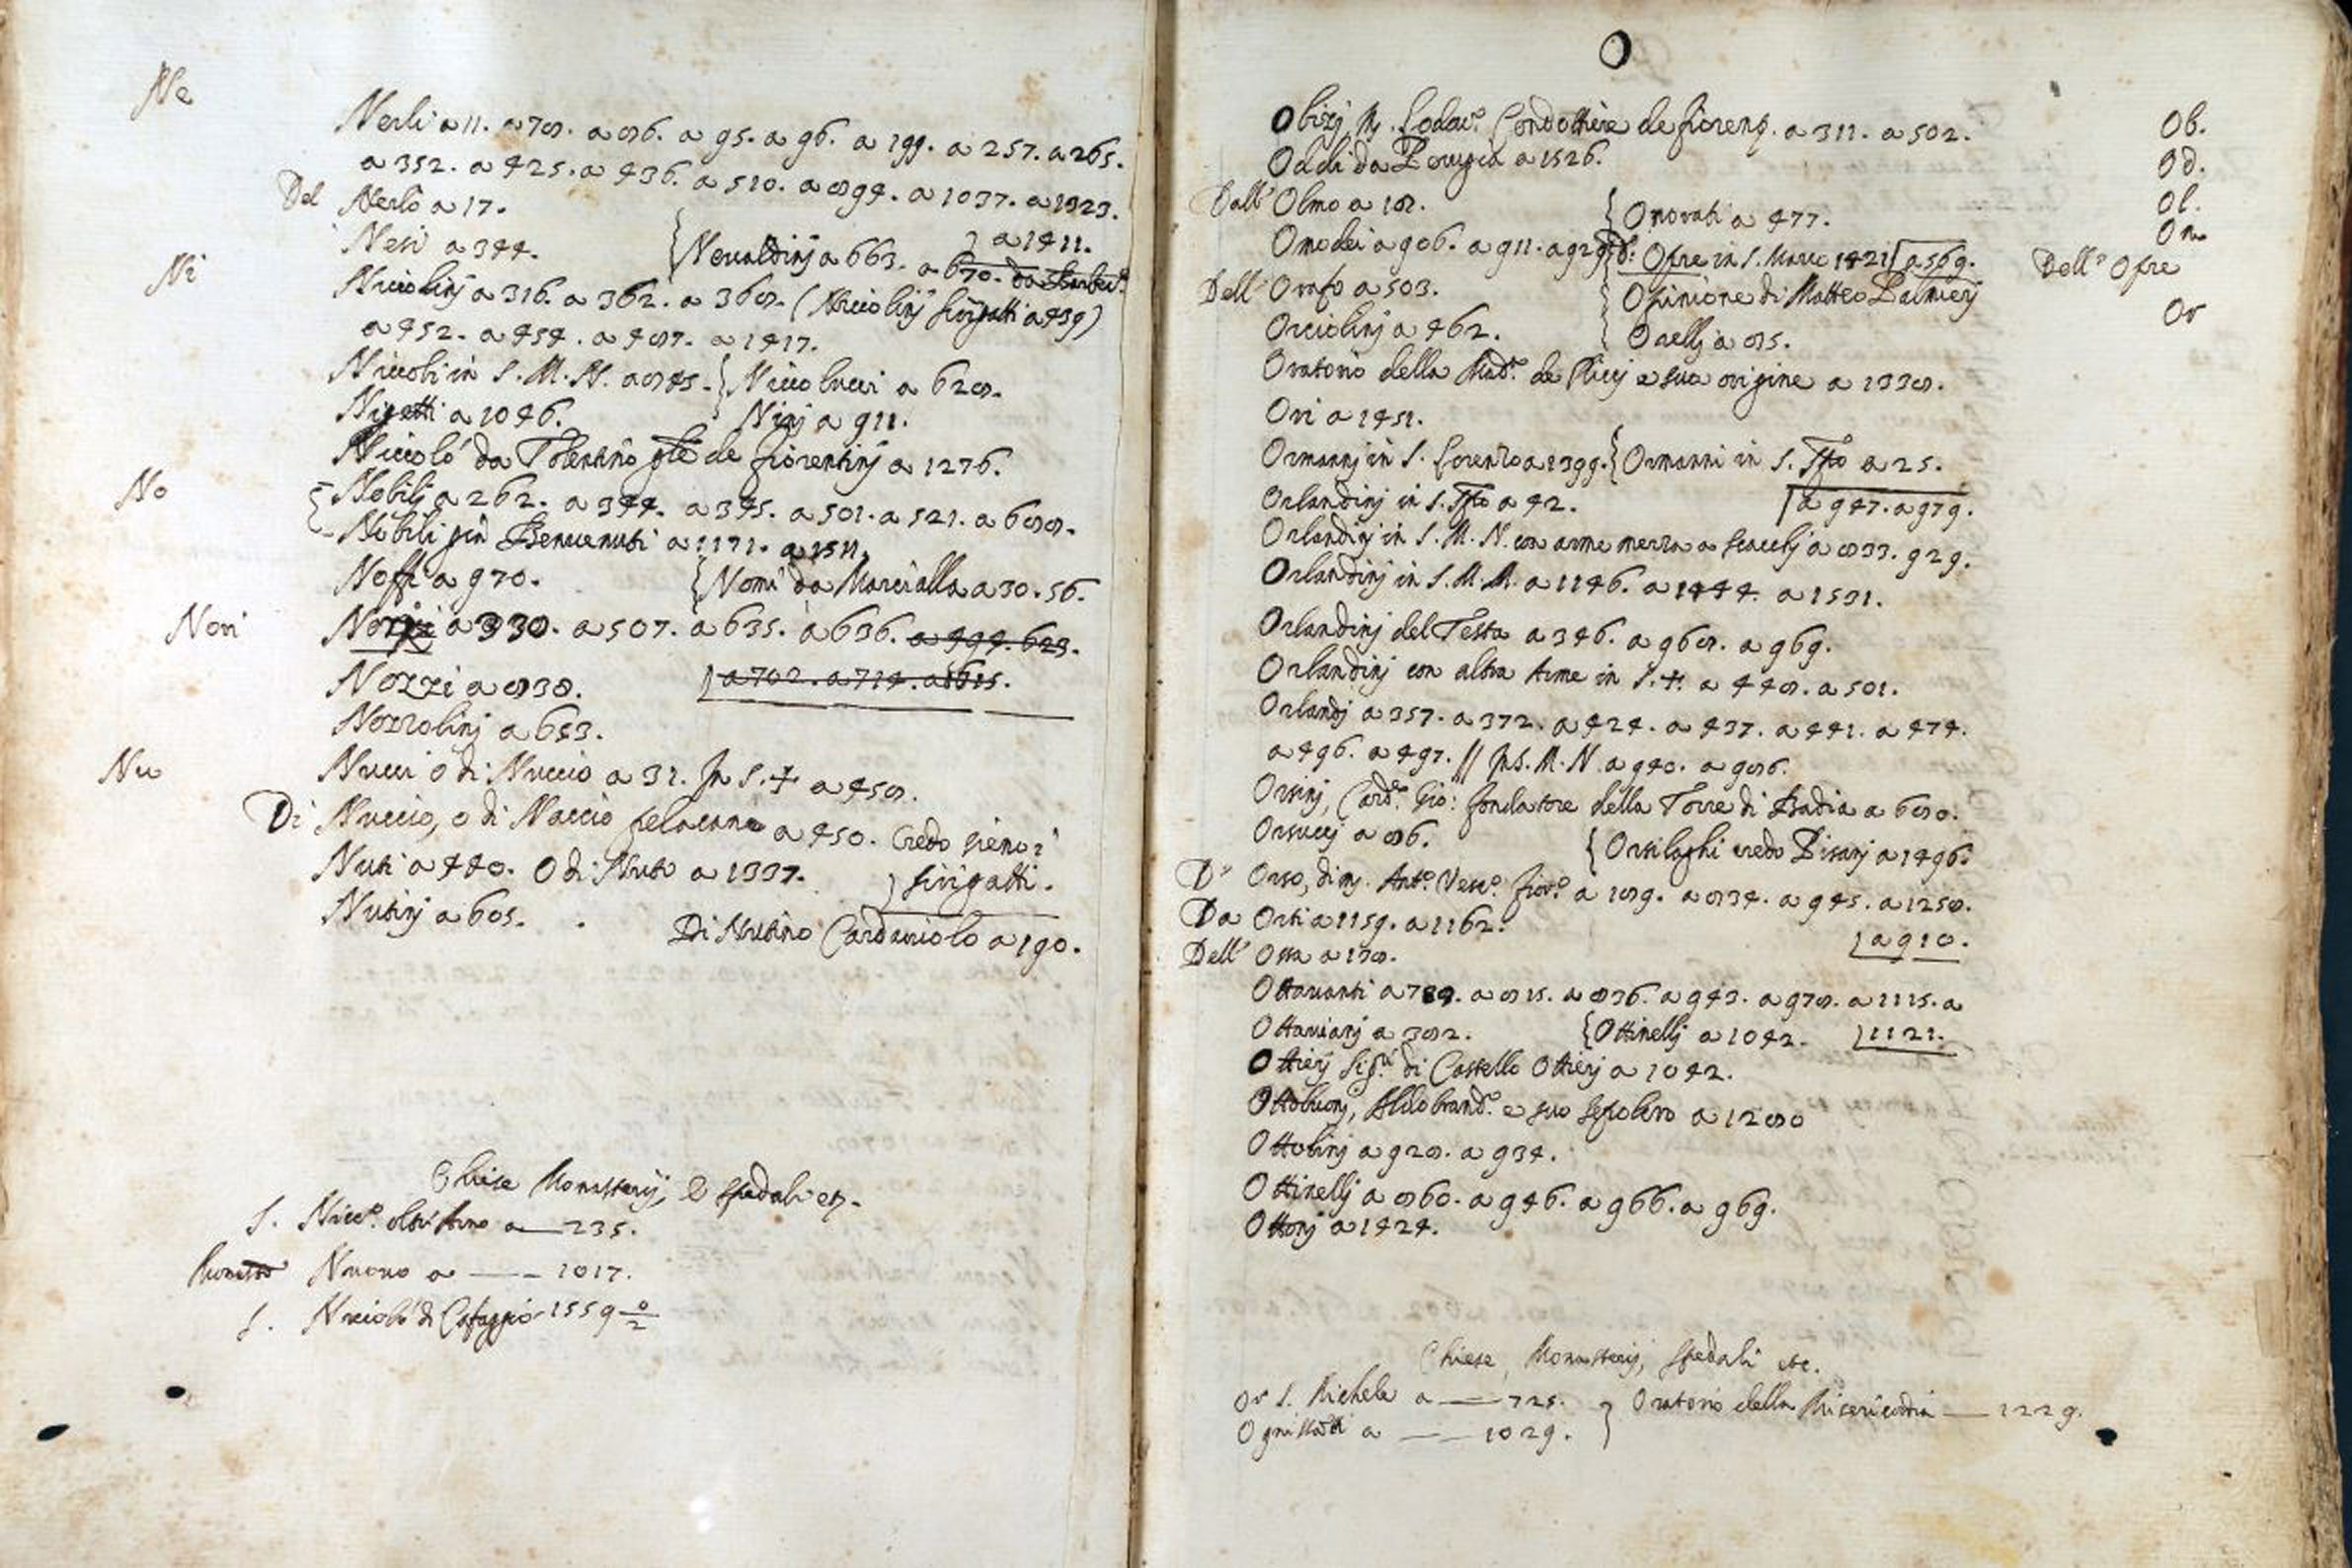 Ne
Nerli a 11. a 78. a 86. a 95. a 96. a 199. a 257. a 265.
a 352. a 425. a 436. a 510. a 894. a 1037. a 1323.
Del Nerlo a 17. } a 1411.
Nesi a 344. { Nevaldinj a 663. a 670. da Barber.
Ni
Niccolinj a 316. a 362. a 368. (Niccolinj Sirigatti a 439)
a 452. a 454. a 487. a 1417.
Niccoli in S. M. N. a 845. { Niccolucci a 628.
Nigetti a 1046. Ninj a 911.
Niccolò da Tolentino gle de fiorentinj a 1276.
No
{ Nobilj a 262. a 344. a 345. a 501. a 521. a 688.
Nobili già Benvenuti a 1171. a 1511.
Noffi a 970. { Nomi da Marcialla a 30. 56.
Nori a 330. a 507. a 635. a 636. a 494. 623.
Nori
a 702. a 714. a 815.
Nozzi a 838.
Nozzolinj a 653.
Nu
Nucci o di Nuccio a 31. In S. + a 458.
Di Nuccio, o di Naccio pelacane a 450. Credo sieno i
Nuti a 440. O di Nuto a 1337. } Sirigatti.
Nutinj a 605.
Di Nutino Carduciolo a 190.
Chiese Monasterij, e spedali etc.
S. Nicco. oltr'Arno a — 235.
Nuovo a — 1017.
S. Niccolò di Cafaggio 1559
O
Obizj, M. Lodovo. Condottiere de fiorent. a 311. a 502.
Ob.
Oddi da Perugia a 1526.
Od.
Dall' Olmo a 181. { Onorati a 477.
Ol.
Omodei a 906. a 911. a 929. Ofre in S. Marco 1421 a 569.
Om
Dell' Ofre
Dell' Orafo a 503. { Opinione di Matteo Palmierj
Orciolinj a 462. { Orellj a 85.
Or
Oratorio della Mada. de Riccj e sua origine a 1338.
Ori a 1451.
Ormannj in S. Lorenzo a 1399. { Ormanni in S. Spto a 25.
Orlandinj in S. Spto a 42. a 947. a 979.
Orlandinj in S. M. N. con arme mezza a scacchj a 833. 929.
Orlandinj in S. M. M. a 1146. a 1444. a 1531.
Orlandinj del Testa a 346. a 968. a 969.
Orlandinj con altra Arme in S. +. a 448. a 501.
Orlandj a 357. a 372. a 424. a 437. a 441. a 474.
a 496. a 497. // In S. M. N. a 940. a 986.
Orsinj, Carde. Gio: fondatore della Torre di Badia a 680.
Orsuccj a 86. { Orsilaghi credo Pisanj a 1496.
D' Orso, di M. Anto. Vesco. fiorno. a 189. a 834. a 945. a 1258.
Da Orti a 1159. a 1162. } a 910.
Dell' Ossa a 138.
Ottavanti a 789. a 815. a 836. a 943. a 978. a 1115. a
Ottavianj a 382. { Ottinellj a 1042. } 1121.
Ottierj Sigri. di Castello Ottierj a 1042.
Ottobuonj, Aldobrando. e suo sepolcro a 1280
Ottolinj a 928. a 934.
Ottinellj a 860. a 946. a 966. a 969.
Ottonj a 1424.
Chiese, Monasterij, Spedali etc.
Or S. Michele a — 725. } Oratorio della Misericordia — 1229.
Ognissanti a — 1029.